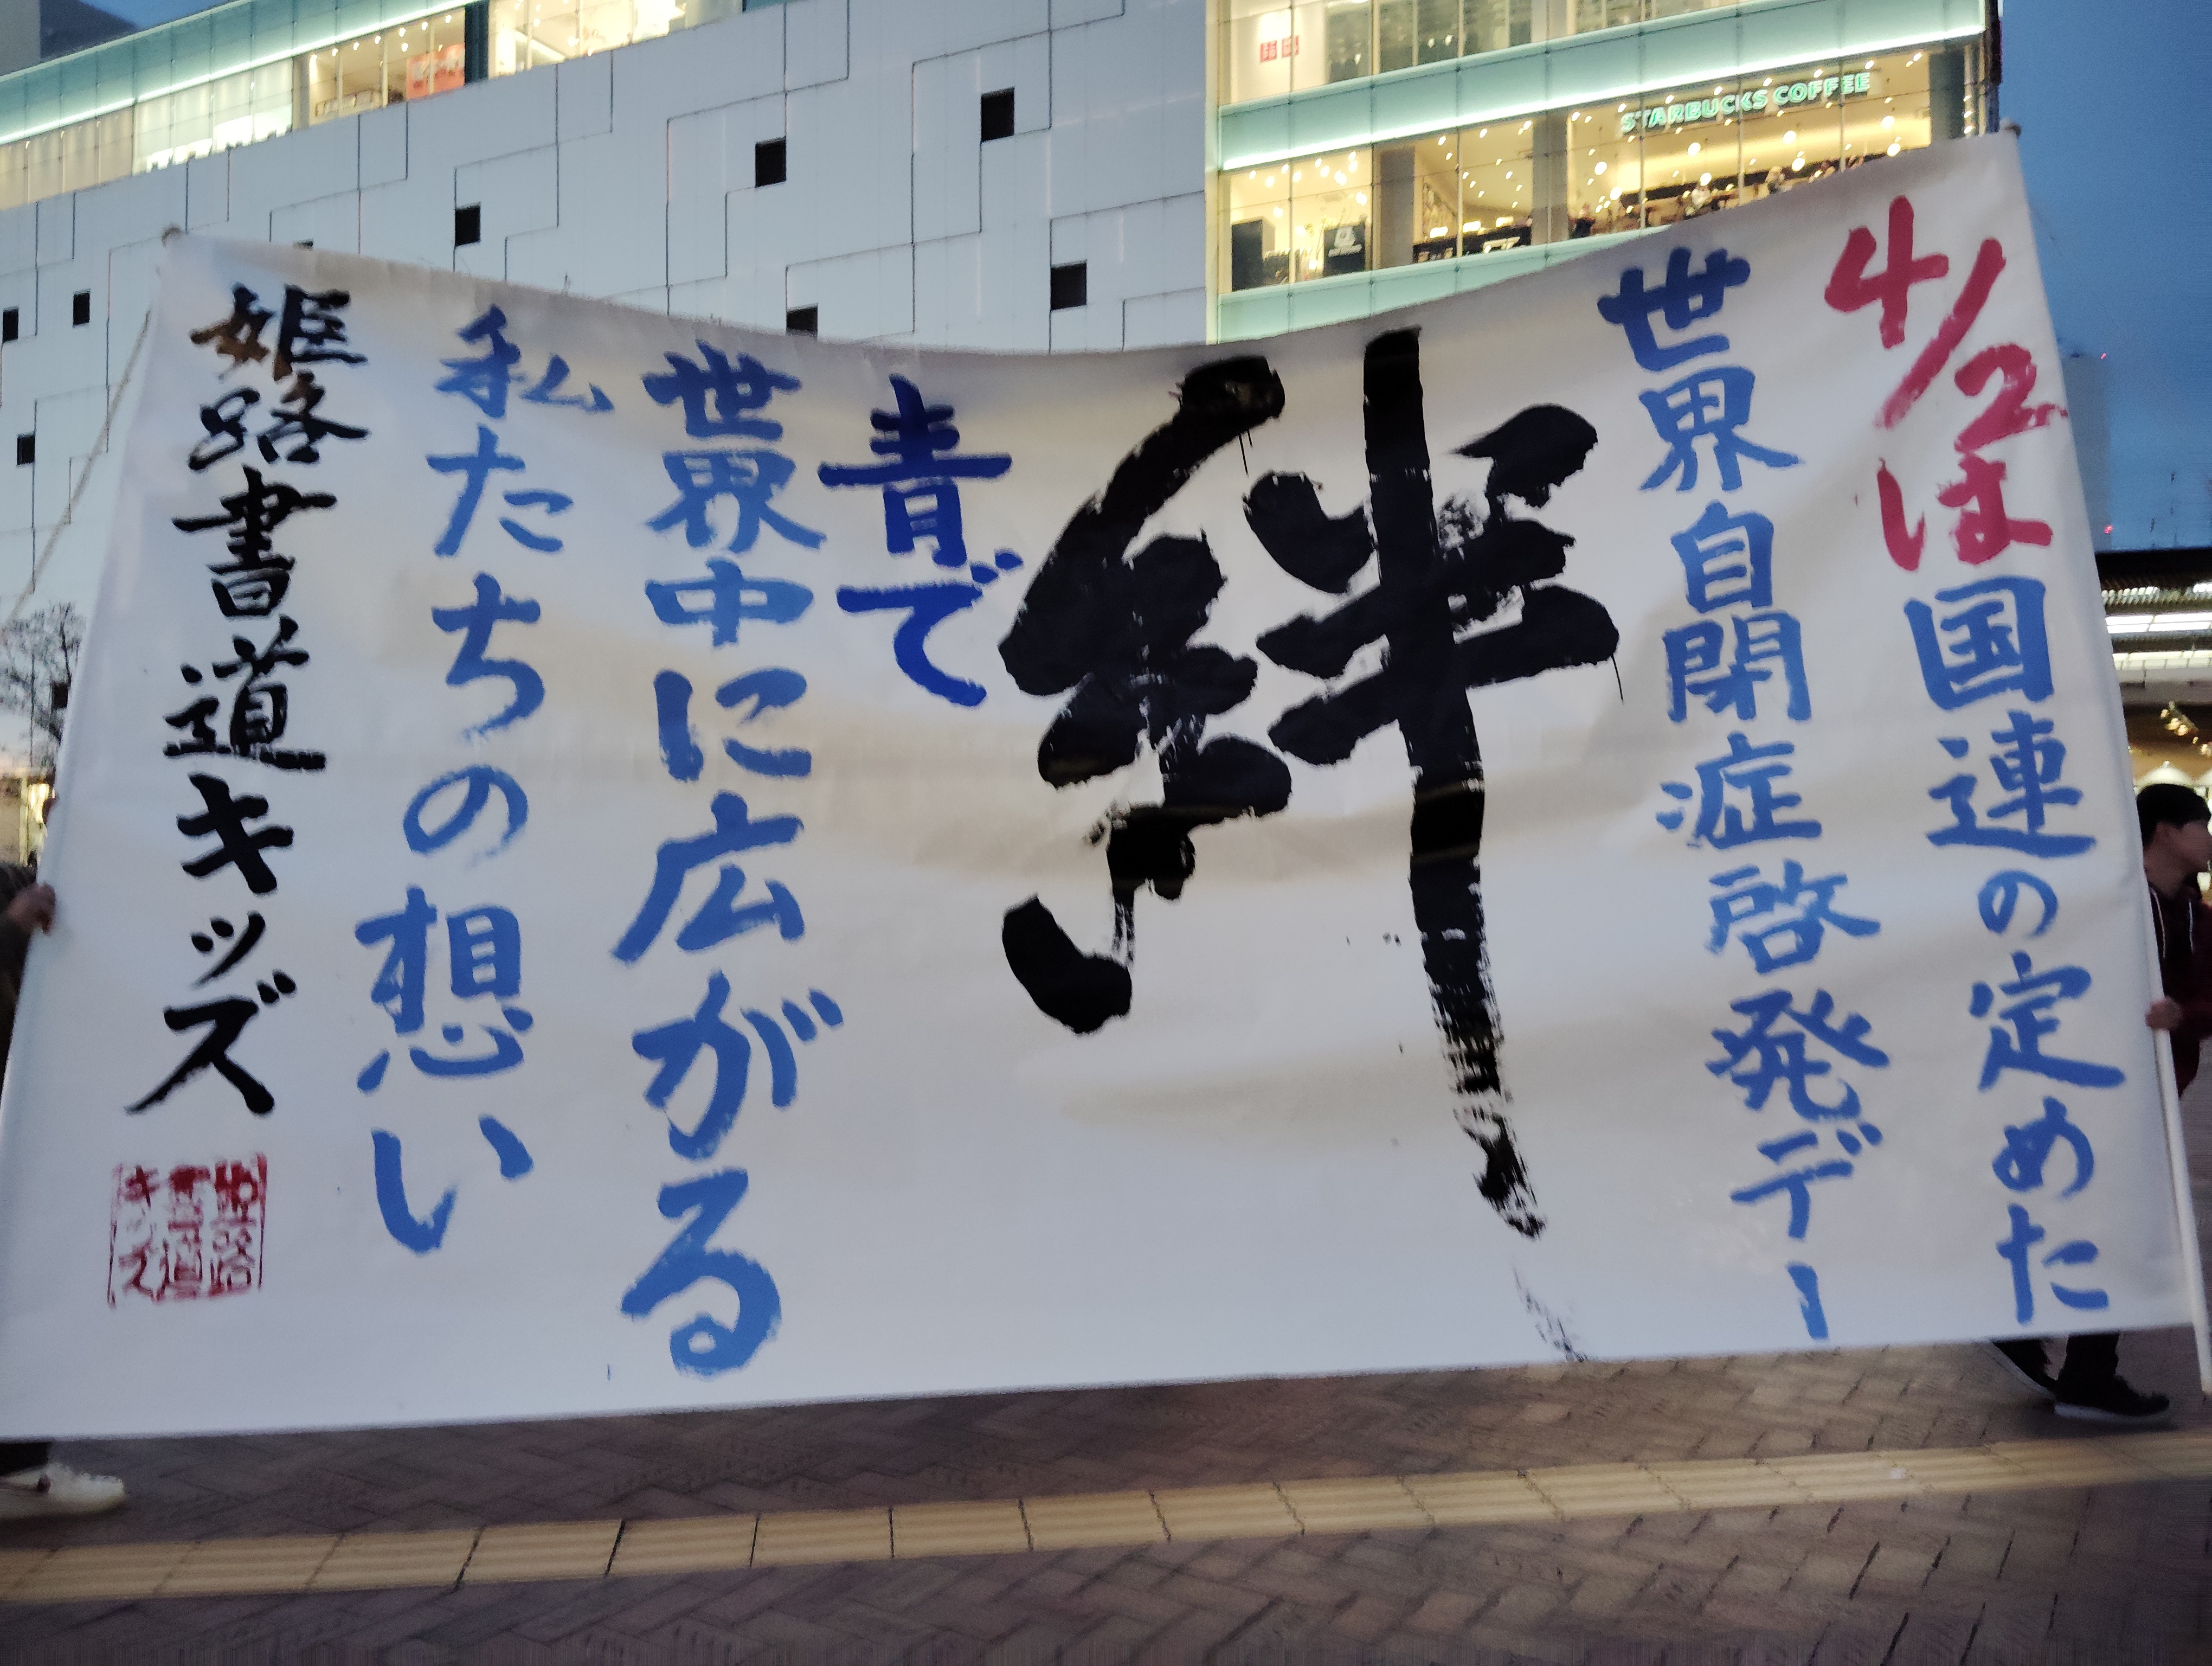 4/2は国連の定めた
世界自閉症啓発デー
絆
青で
世界中に広がる
私たちの想い
姫路書道キッズ
姫路
書道
キッズ
STARBUCKS COFFEE